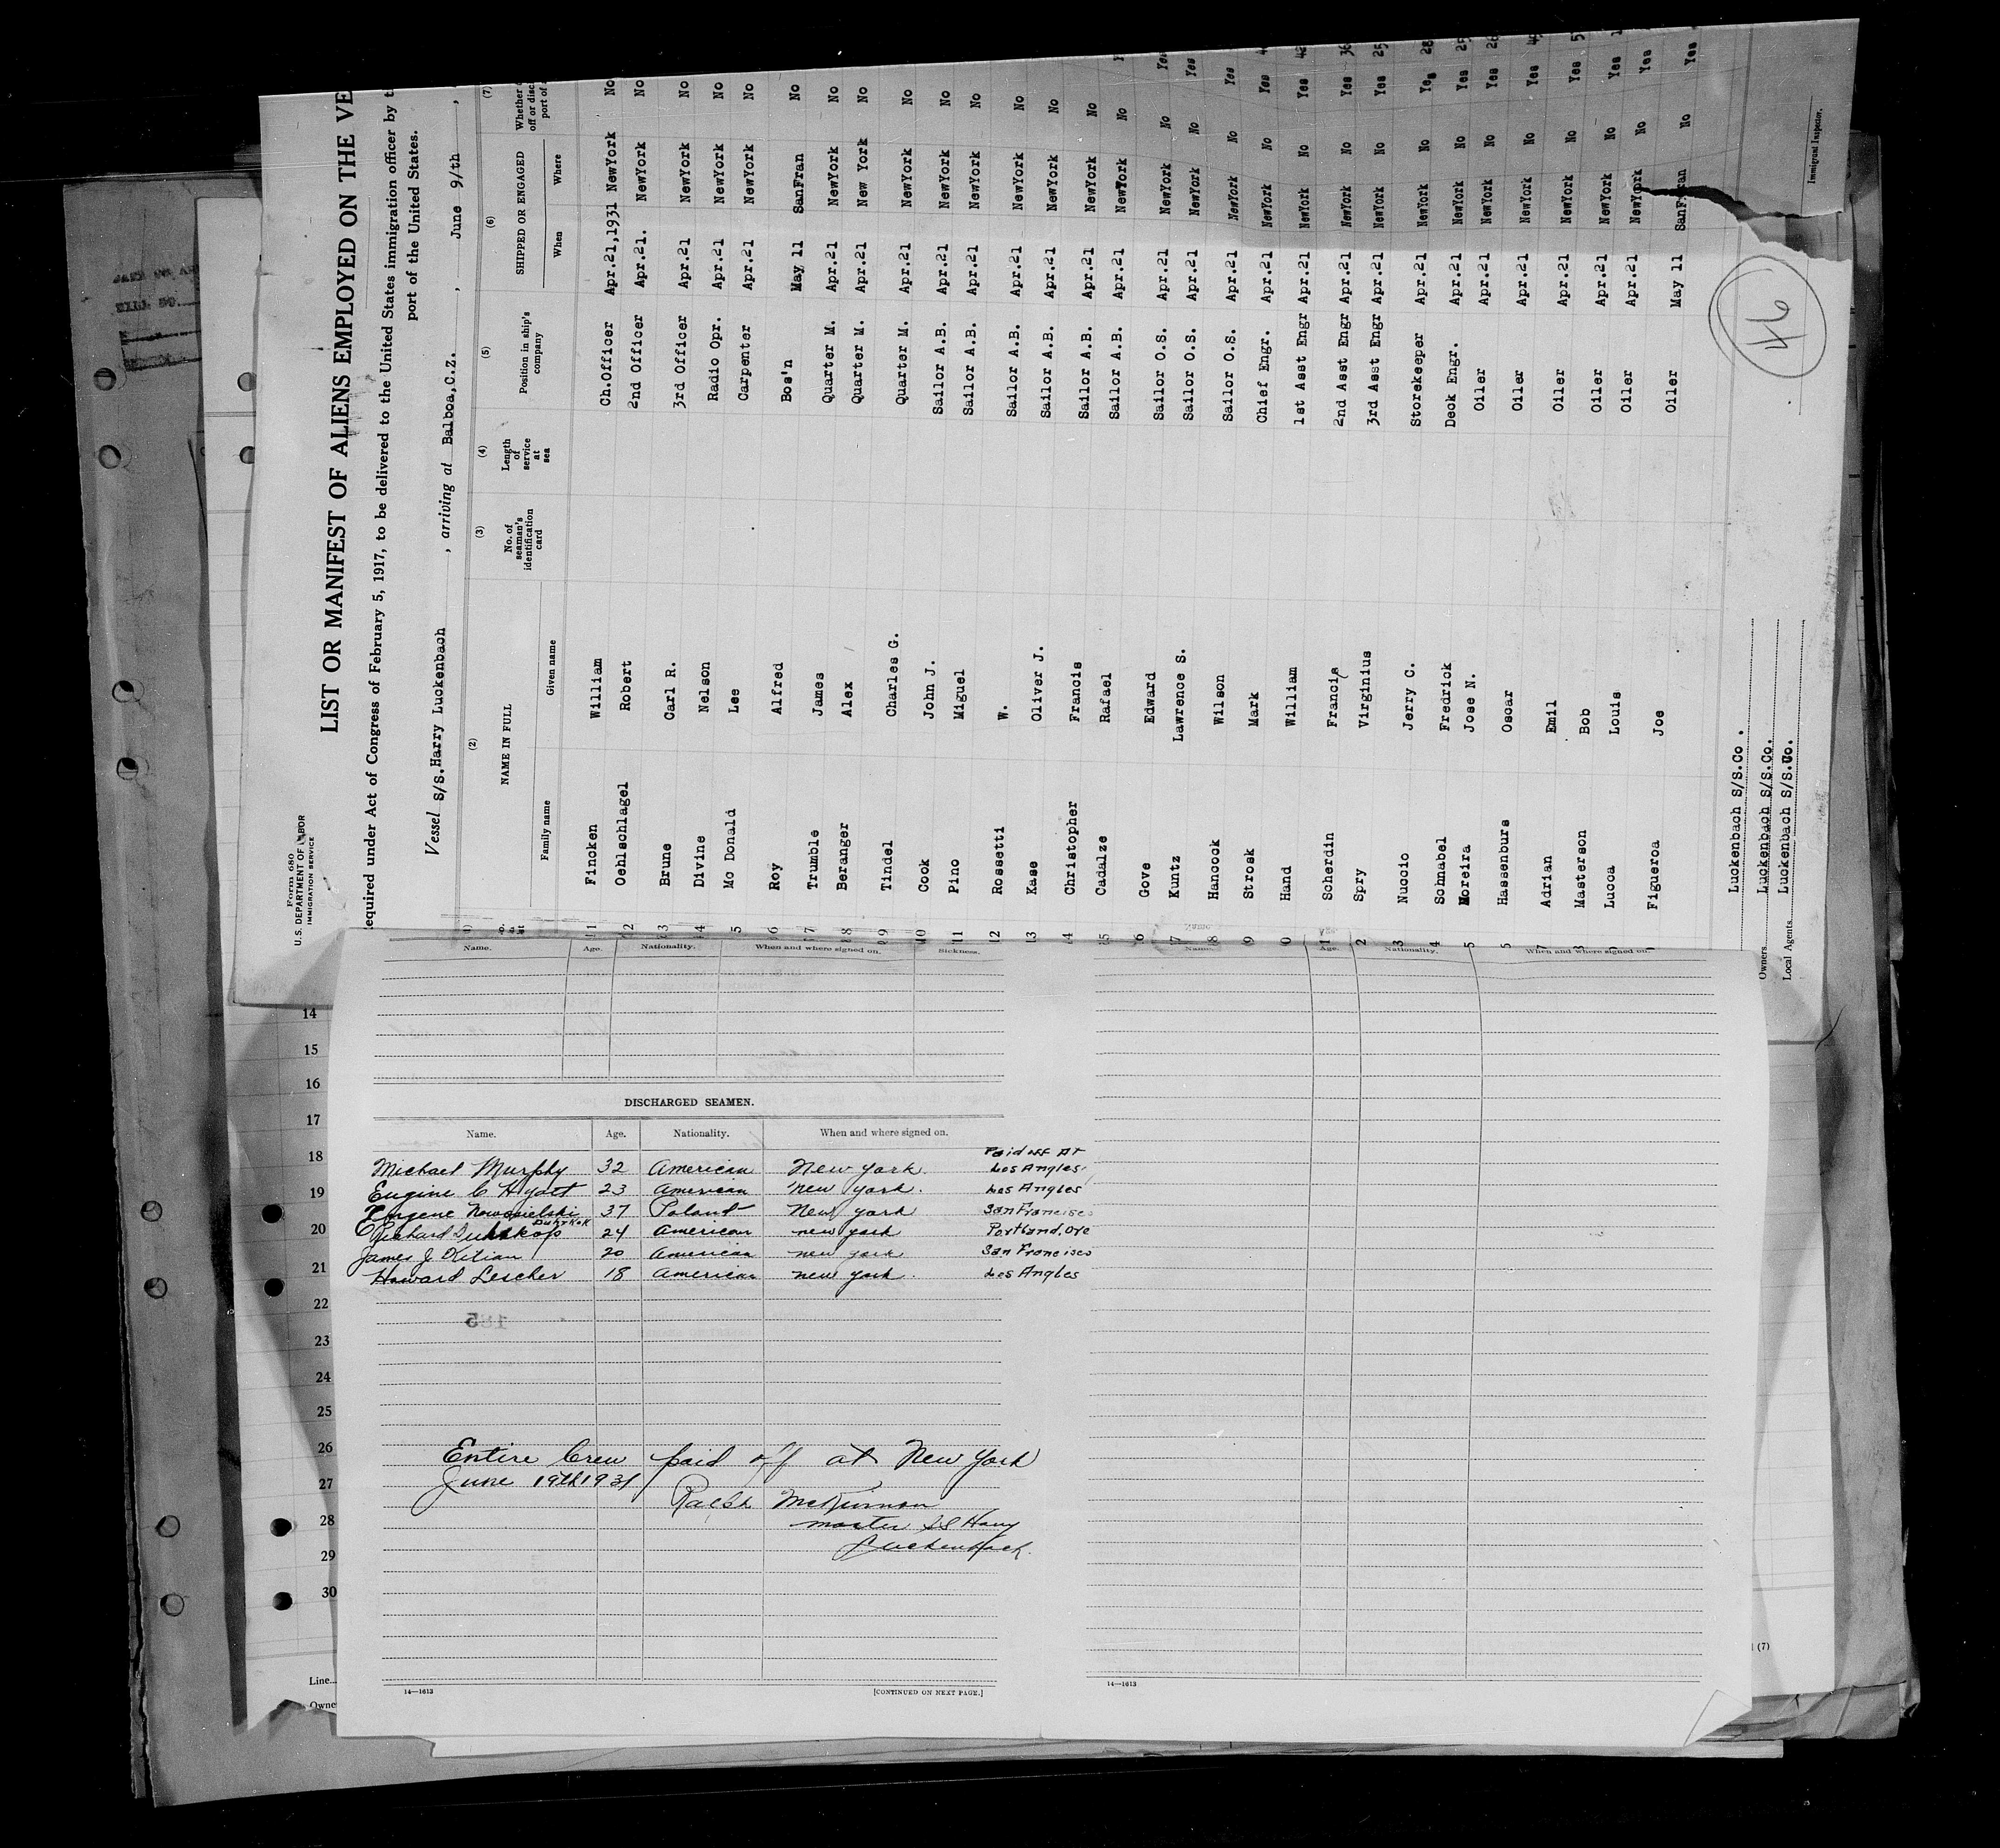 Form 680
U.S. DEPARTMENT OF LABOR
IMMIGRATION SERVICE
LIST OR MANIFEST OF ALIENS EMPLOYED ON THE VE
equired under Act of Congress of February 5, 1917, to be delivered to the United States immigration officer by t
port of the United States.
Vessel S/S.Harry Luckenbach , arriving at Balboa,C.Z. , June 9/th ,
(2) (3) (4) (5) (6) (7)
NAME IN FULL No. of seaman's identification card Length of service at sea Position in ship's company SHIPPED OR ENGAGED Whether off or disc port of
Family name Given name When Where
1 Fincken William Ch.Officer Apr.21,1931 NewYork No
2 Oehlschlagel Robert 2nd Officer Apr.21. NewYork No
3 Brune Carl R. 3rd Officer Apr.21 NewYork No
4 Divine Nelson Radio Opr. Apr.21 NewYork No
5 Mc Donald Lee Carpenter Apr.21 NewYork No
6 Roy Alfred Bos'n May 11 SanFran No
7 Trumble James Quarter M. Apr.21 NewYork No
8 Beranger Alex Quarter M. Apr.21 New York No
9 Tindel Charles G. Quarter M. Apr.21 NewYork No
10 Cook John J. Sailor A.B. Apr.21 NewYork No
11 Pino Miguel Sailor A.B. Apr.21 NewYork No
12 Rossetti W. Sailor A.B. Apr.21 NewYork No
3 Kase Oliver J. Sailor A.B. Apr.21 NewYork No
4 Christopher Francis Sailor A.B. Apr.21 NewYork No
5 Cadalze Rafael Sailor A.B. Apr.21 NewYork No Y
6 Gove Edward Sailor O.S. Apr.21 NewYork No Yes
7 Kuntz Lawrence S. Sailor O.S. Apr.21 NewYork No Yes
8 Hancock Wilson Sailor O.S. Apr.21 NewYork No Yes
9 Strosk Mark Chief Engr. Apr.21 NewYork No Yes 4
0 Hand William 1st Asst Engr Apr.21 NewYork No Yes 42
1 Scherdin Francis 2nd Asst Engr Apr.21 NewYork No Yes 36
2 Spry Virginius 3rd Asst Engr Apr.21 NewYork No Yes 25
3 Nuccio Jerry C. Storekeeper Apr.21 NewYork No Yes 28
4 Schnabel Fredrick Deck Engr. Apr.21 NewYork No Yes 25
5 Moreira Jose N. Oiler Apr.21 NewYork No Yes 26
Hassenburs Oscar Oiler Apr.21 NewYork No Yes 45
Adrian Emil Oiler Apr.21 NewYork No Yes 5
Masterson Bob Oiler Apr.21 NewYork No Yes
Lucca Louis Oiler Apr.21 NewYork No Yes
Figueroa Joe Oiler May 11 SanFran No Yes
Luckenbach S/S.Co .
Owners Luckenbach S/S.Co.
Local Agents. Luckenbach S/S.Co.
46
Immigrant Inspector.
Name. Age. Nationality. When and where signed on. Sickness.
Name. Age. Nationality. When and where signed on.
DISCHARGED SEAMEN.
Name. Age. Nationality. When and where signed on.
Paid off At
Michael Murphy 32 American New York. Los Angles
Eugine C Hyatt 23 American New York. Los Angles
Eugene Nowosielski 37 Poland New York San Francisco
Richard 24 American New York Portland, Ore
James J Kilian 20 American New York San Francisco
Howard Lescher 18 American New York. Los Angles
Entire Crew paid off at New York
June 19th 1931
Ralph McKinnon
master SS Harry
Luckenbach.
14—1613 [CONTINUED ON NEXT PAGE.]
14—1613
14
15
16
17
18
19
20
21
22
23
24
25
26
27
28
29
30
Line
Owne
(7)